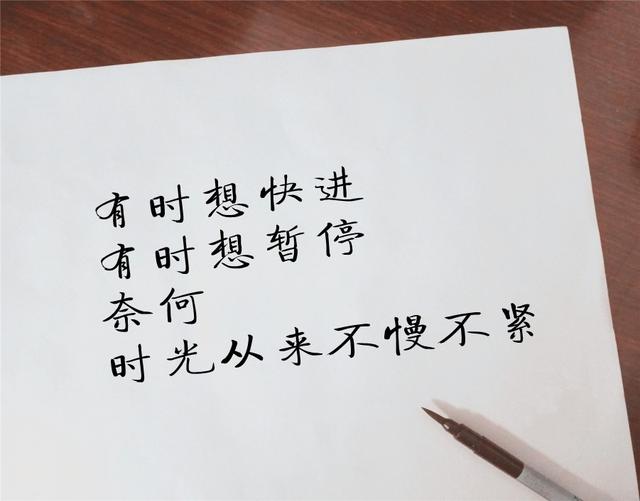 有时想快进
有时想暂停
奈何
时光从来不慢不紧